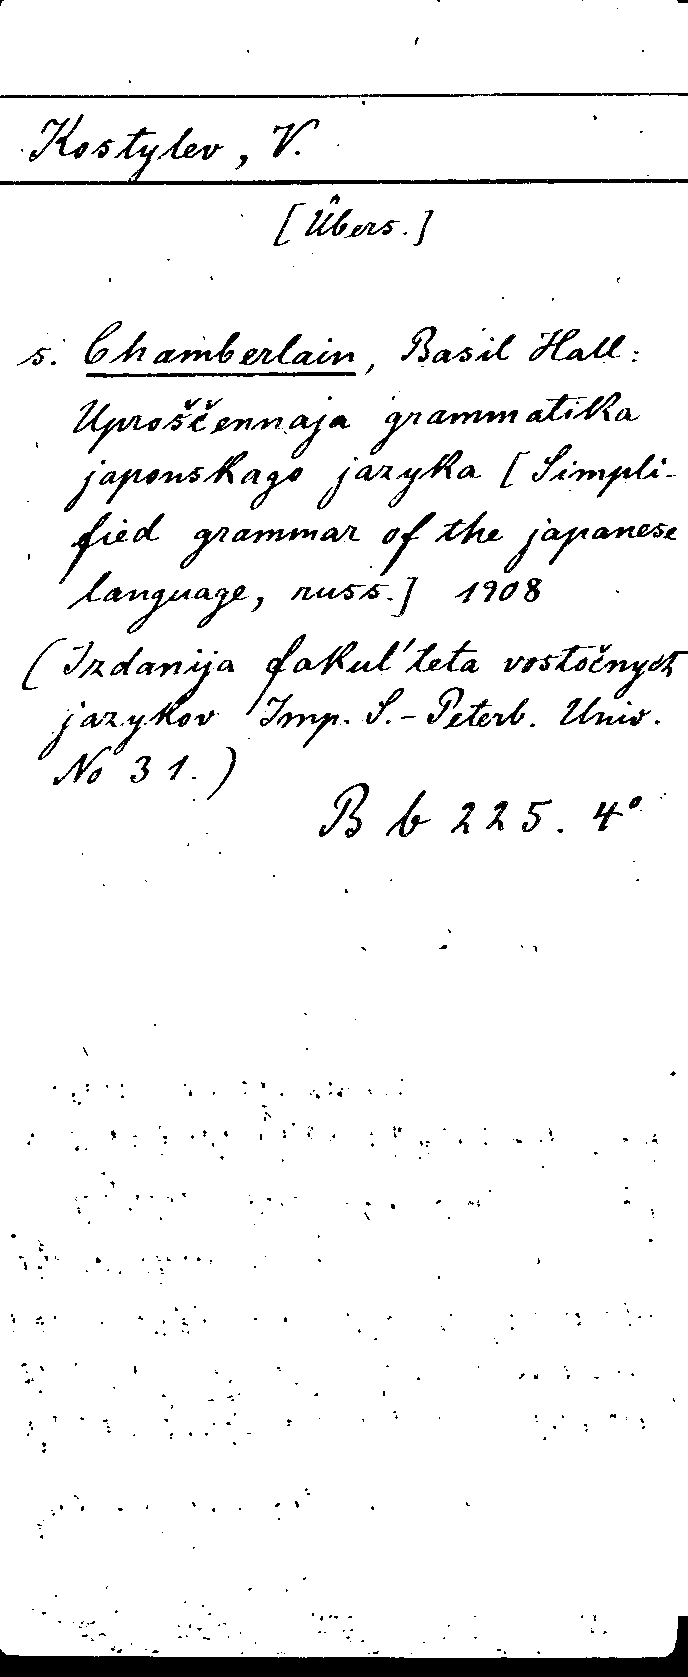 Kostylev, V.
[Übers.]
s. Chamberlain, Basil Hall:
Uproščennaja grammatika
japonskago jazyka [Simpli-
fied grammar of the japanese
language, russ.] 1908
(Izdanija fakul'teta vostočnych
jazykov Imp. S.-Peterb. Univ.
No 31.)
B b 225. 4°